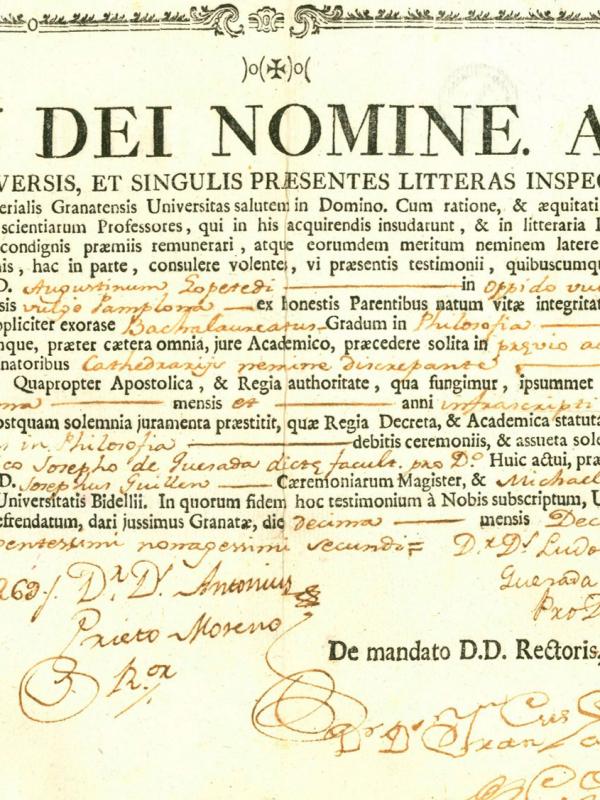 )o(✠)o(
DEI NOMINE. A
VERSIS, ET SINGULIS PRÆSENTES LITTERAS INSPEC
erialis Granatensis Universitas salutem in Domino. Cum ratione, & æquitati
scientiarum Professores, qui in his acquirendis insudarunt, & in litteraria
condignis præmiis remunerari, atque eorumdem meritum neminem latere
nis, hac in parte, consulere volentes, vi præsentis testimonii, quibuscumqu
D. Augustinum Loperedi in oppido
sis vulgo Pamplona ex honestis Parentibus natum vitæ integritat
ppliciter exorase Bachalaureatus Gradum in Philosofia
nque, præter cætera omnia, jure Academico, præcedere solita in prævio
natoribus Cathedrarijs nemine discrepante
Quapropter Apostolica, & Regia authoritate, qua fungimur, ipsummet
ma mensis et anni infrascripti
ostquam solemnia juramenta præstitit, quæ Regia Decreta, & Academica statuta
s in Philosofia debitis ceremoniis, & assueta sole
co Josepho de Guerada dictę facult. pro D.º Huic actui, præ
D. Josephus Guillen Cæremoniarum Magister, & Michael
Universitatis Bidellii. In quorum fidem hoc testimonium à Nobis subscriptum, U
efrendatum, dari jussimus Granatæ, die Decima mensis Dec
nonagessimi secundi= D.r D.s Ludo
269 D.r D.s Antonius Guerada
Prieto Moreno Pro D
R.or
De mandato D.D. Rectoris,